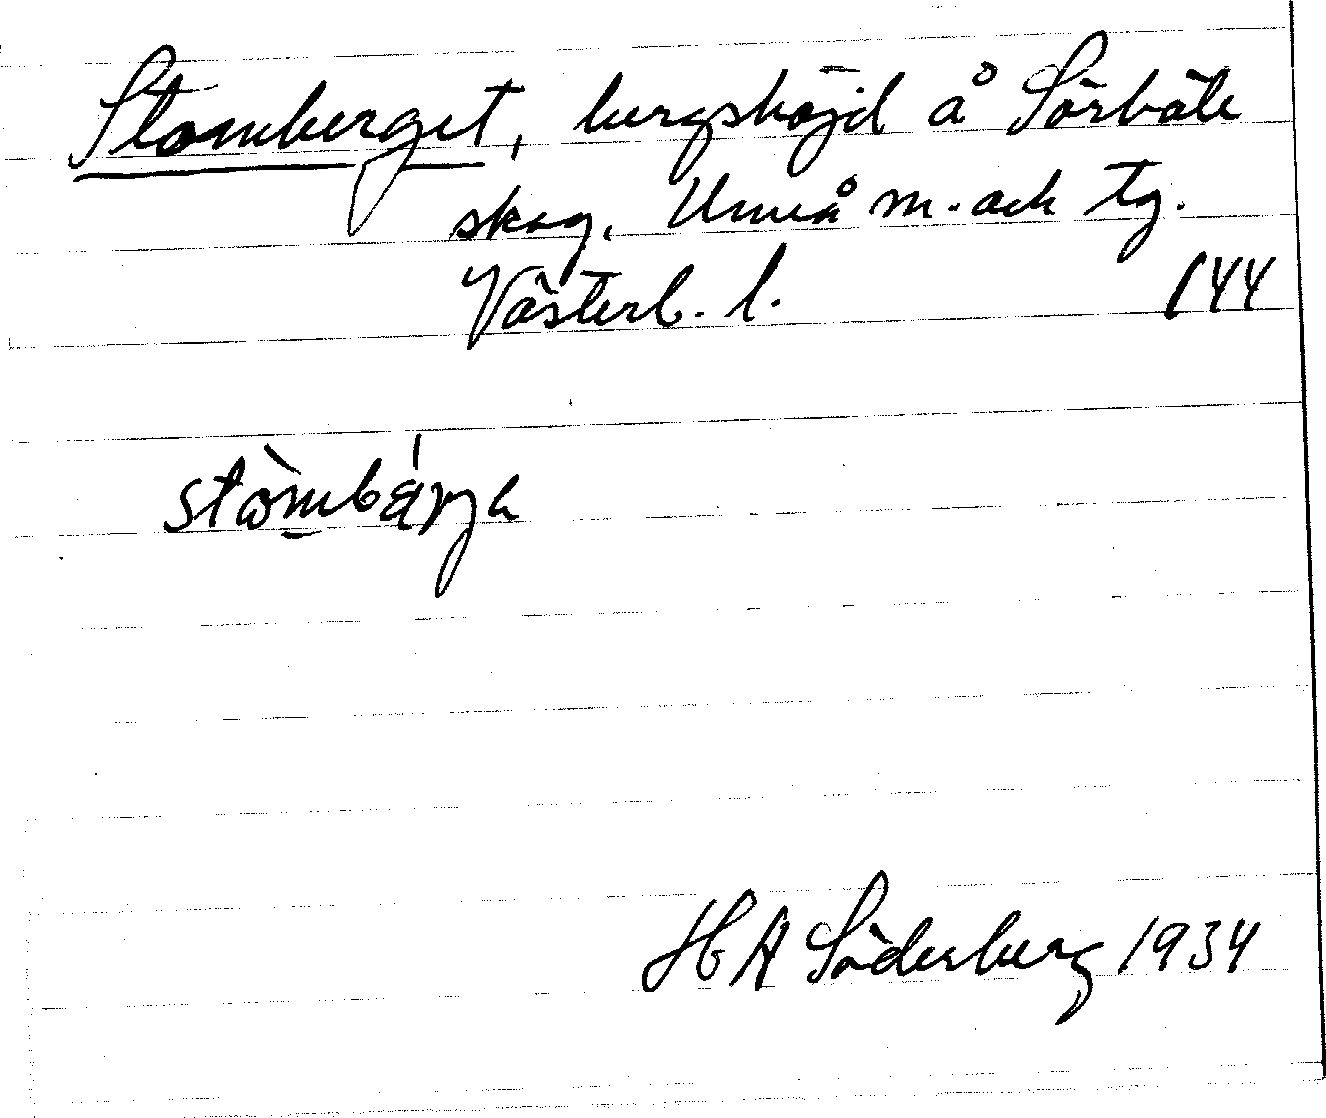 Stomberget, bergshöjd å Sörböle
skog, Umeå m. och tg.
Västerb. l. 144
HA Söderberg 1934